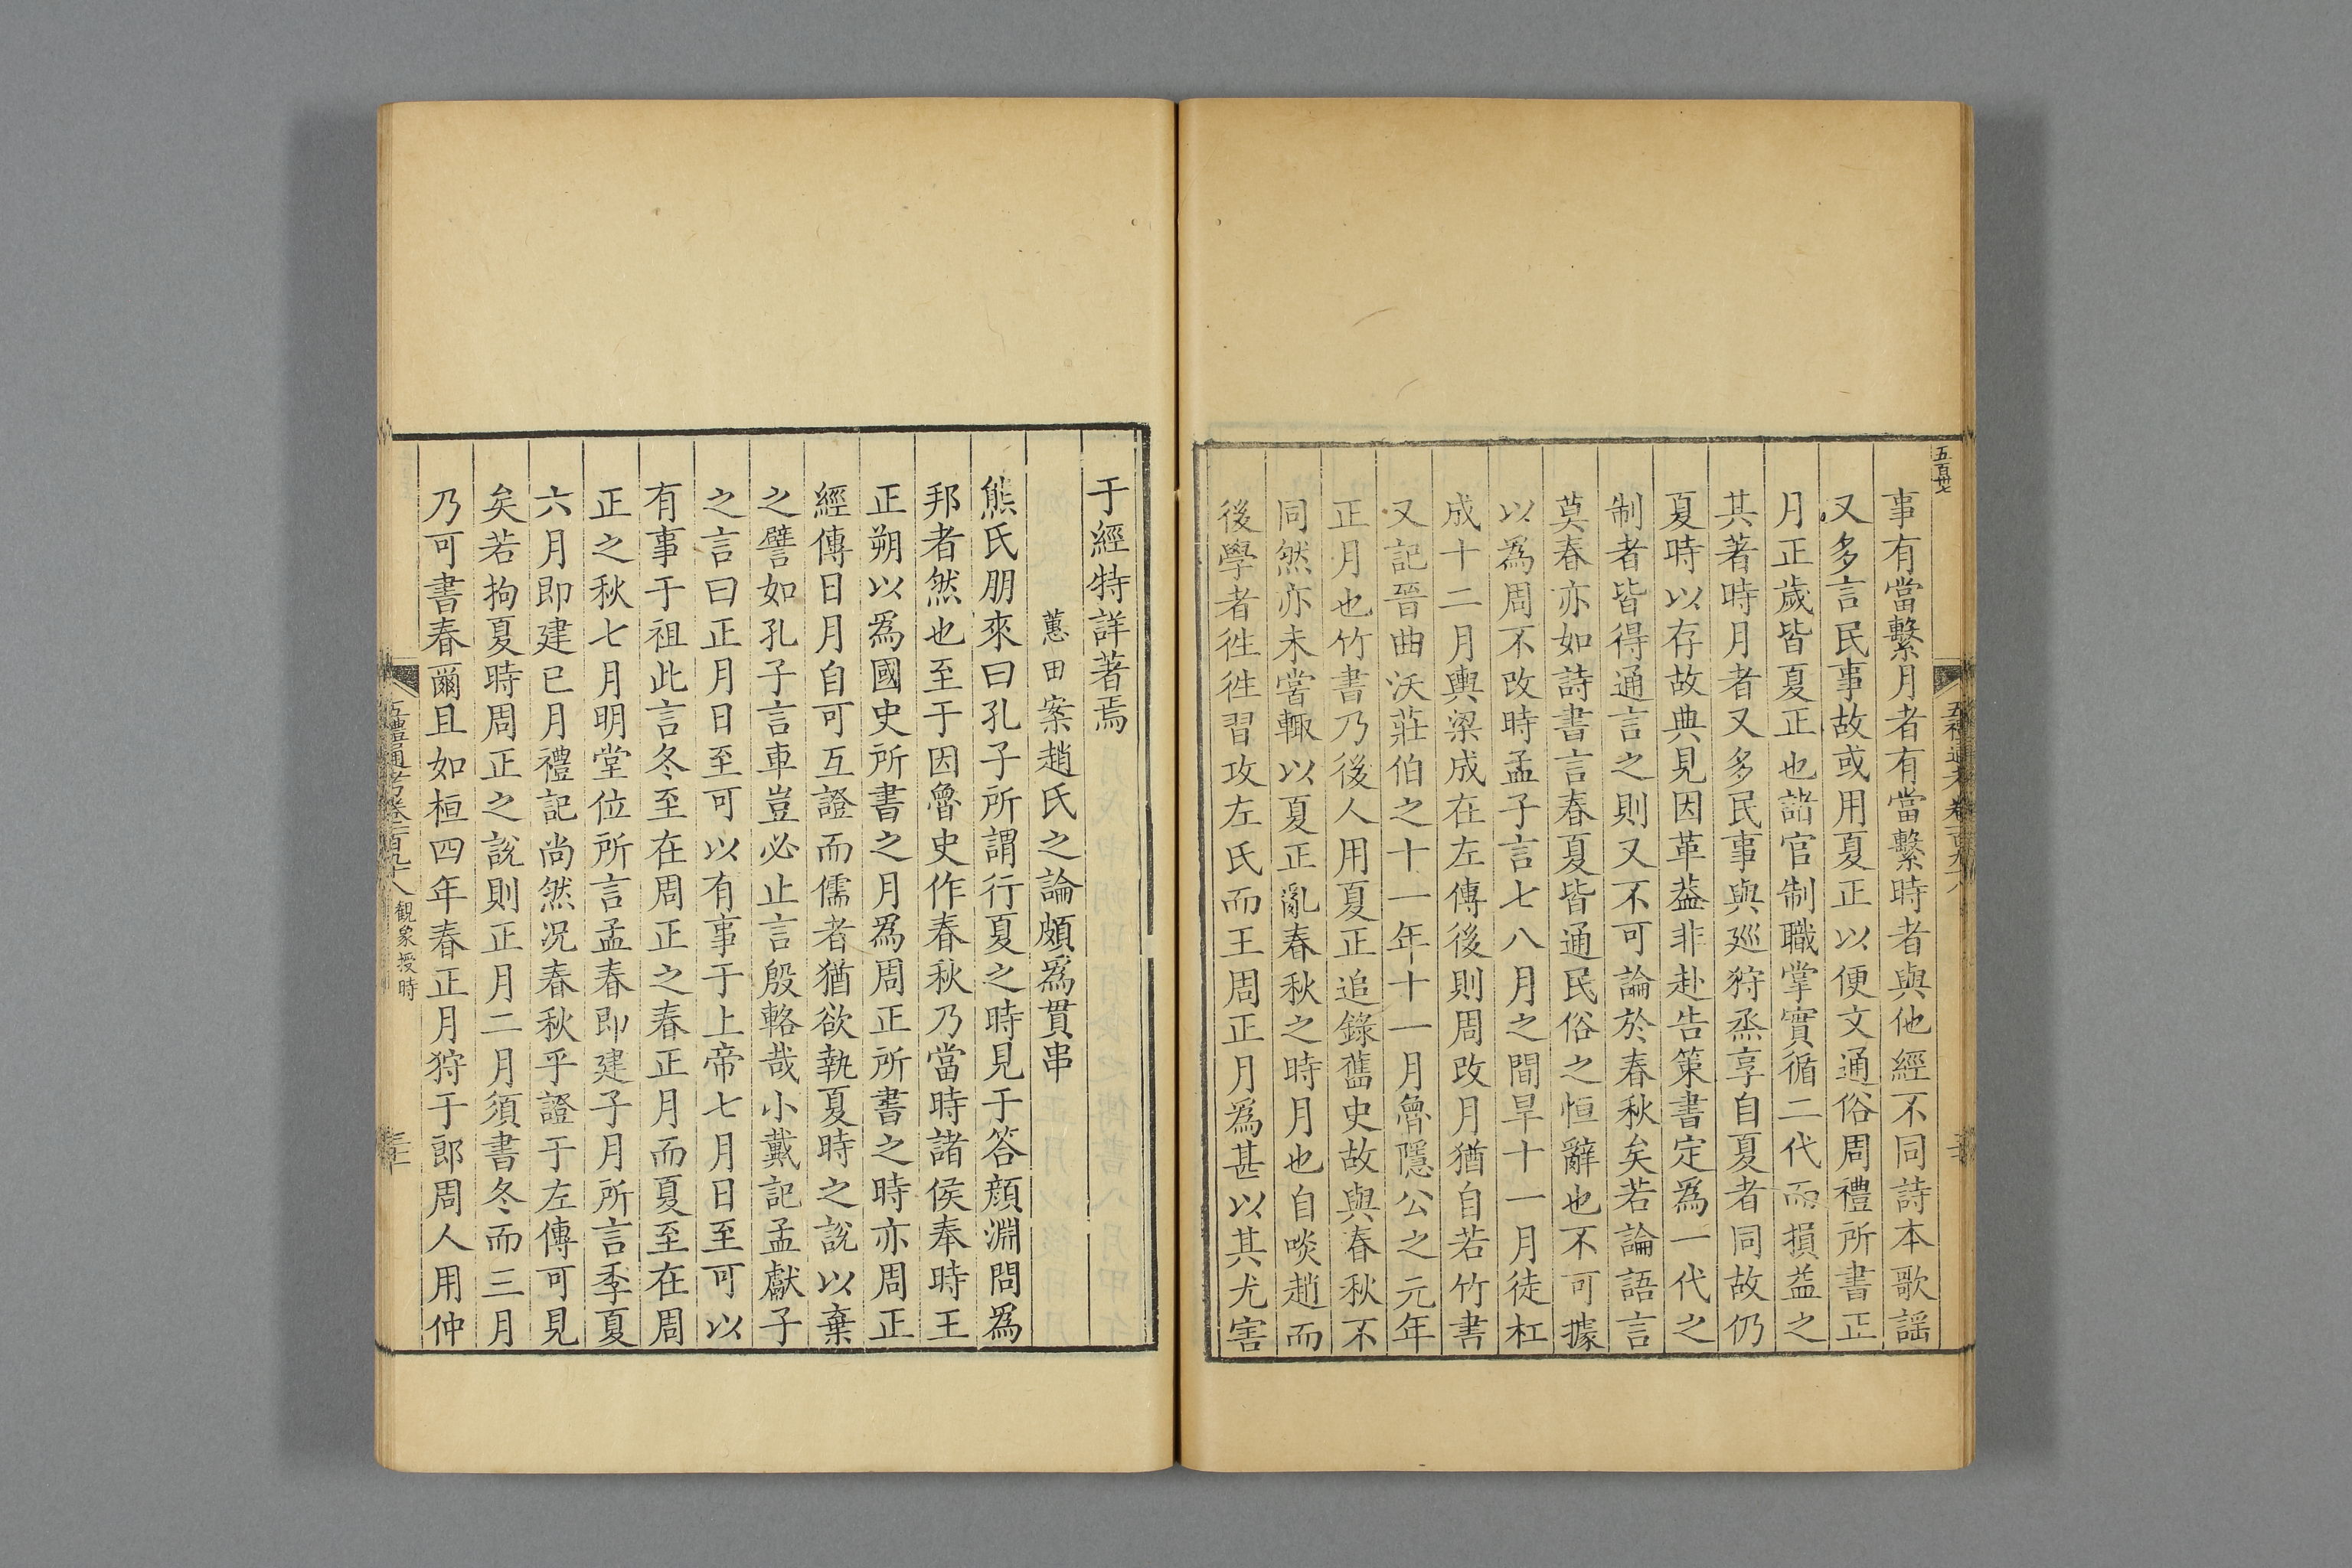 五百卅七
五禮通考卷一百九十八
事有當繫月者有當繫時者與他經不同詩本歌謡
又多言民事故或用夏正以便文通俗周禮所書正
月正歲皆夏正也諸官制職掌實循二代而損益之
其著時月者又多民事與廵狩烝享自夏者同故仍
夏時以存故典見因革葢非赴告策書定爲一代之
制者皆得通言之則又不可論於春秋矣若論語言
莫春亦如詩書言春夏皆通民俗之恒辭也不可據
以爲周不改時孟子言七八月之間旱十一月徒杠
成十二月輿梁成在左傳後則周改月猶自若竹書
又記晉曲沃莊伯之十一年十一月魯隱公之元年
正月也竹書乃後人用夏正追錄舊史故與春秋不
同然亦未嘗輙以夏正亂春秋之時月也自啖趙而
後學者徃徃習攻左氏而王周正月爲甚以其尤害
于經特詳著焉
蕙田案趙氏之論頗爲貫串
熊氏朋來曰孔子所謂行夏之時見于答顔淵問爲
邦者然也至于因魯史作春秋乃當時諸侯奉時王
正朔以爲國史所書之月爲周正所書之時亦周正
經傳日月自可互證而儒者猶欲執夏時之說以棄
之譬如孔子言車豈必止言殷輅哉小戴記孟獻子
之言曰正月日至可以有事于上帝七月日至可以
有事于祖此言冬至在周正之春正月而夏至在周
正之秋七月明堂位所言孟春即建子月所言季夏
六月即建巳月禮記尚然况春秋乎證于左傳可見
矣若拘夏時周正之說則正月二月須書冬而三月
乃可書春爾且如桓四年春正月狩于郎周人用仲
五禮通考卷一百九十八 觀象授時